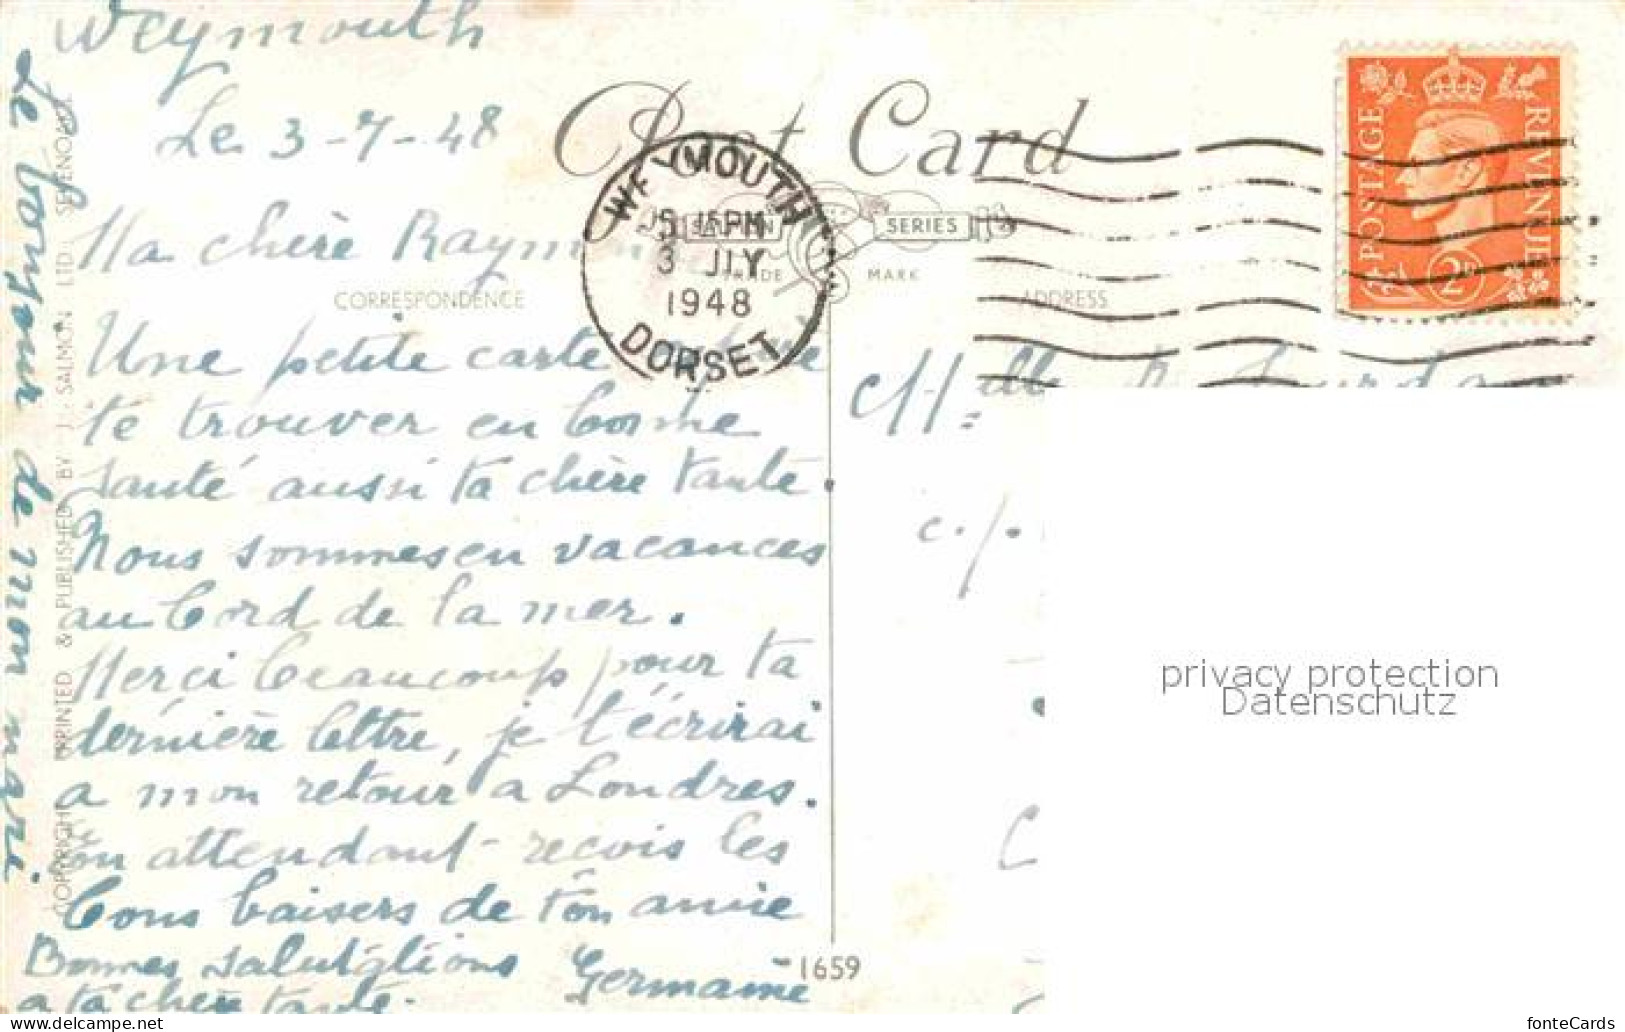 Weymouth
Le 3-7-48
Post Card
WEYMOUTH
5 15 PM
3 JLY
1948
DORSET
POSTAGE
REVENUE
2D
SERIES
TRADE MARK
CORRESPONDENCE
ADDRESS
Ma chère
Une petite carte
te trouver en bonne
santé aussi ta chère tante.
Nous sommes en vacances
au bord de la mer.
Merci beaucoup pour ta
dernière lettre, je t'écrirai
a mon retour a Londres.
En attendant reçois les
bons baisers de ton amie
Germaine
Bonnes salutations
a ta chère tante.
Le bonjour de mon mari
COPYRIGHT PRINTED & PUBLISHED BY J. SALMON LTD SEVENOAKS
Mlle
c/.
1659
privacy protection
Datenschutz
delcampe.net
fonteCards